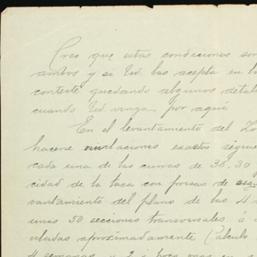 Creo que estas condiciones son
ambos y si Ud. las acepta en
conteste quedando algunos detal
cuando Ud venga por aquí
En el levantamiento del
hacerse nivelaciones exactas
cada una de las curvas de 35. 30
cidad de la taza con forma de
vantamiento del plano de las
unas 30 secciones transversales ó
veladas aproximadamente (Calculo
4 semanas